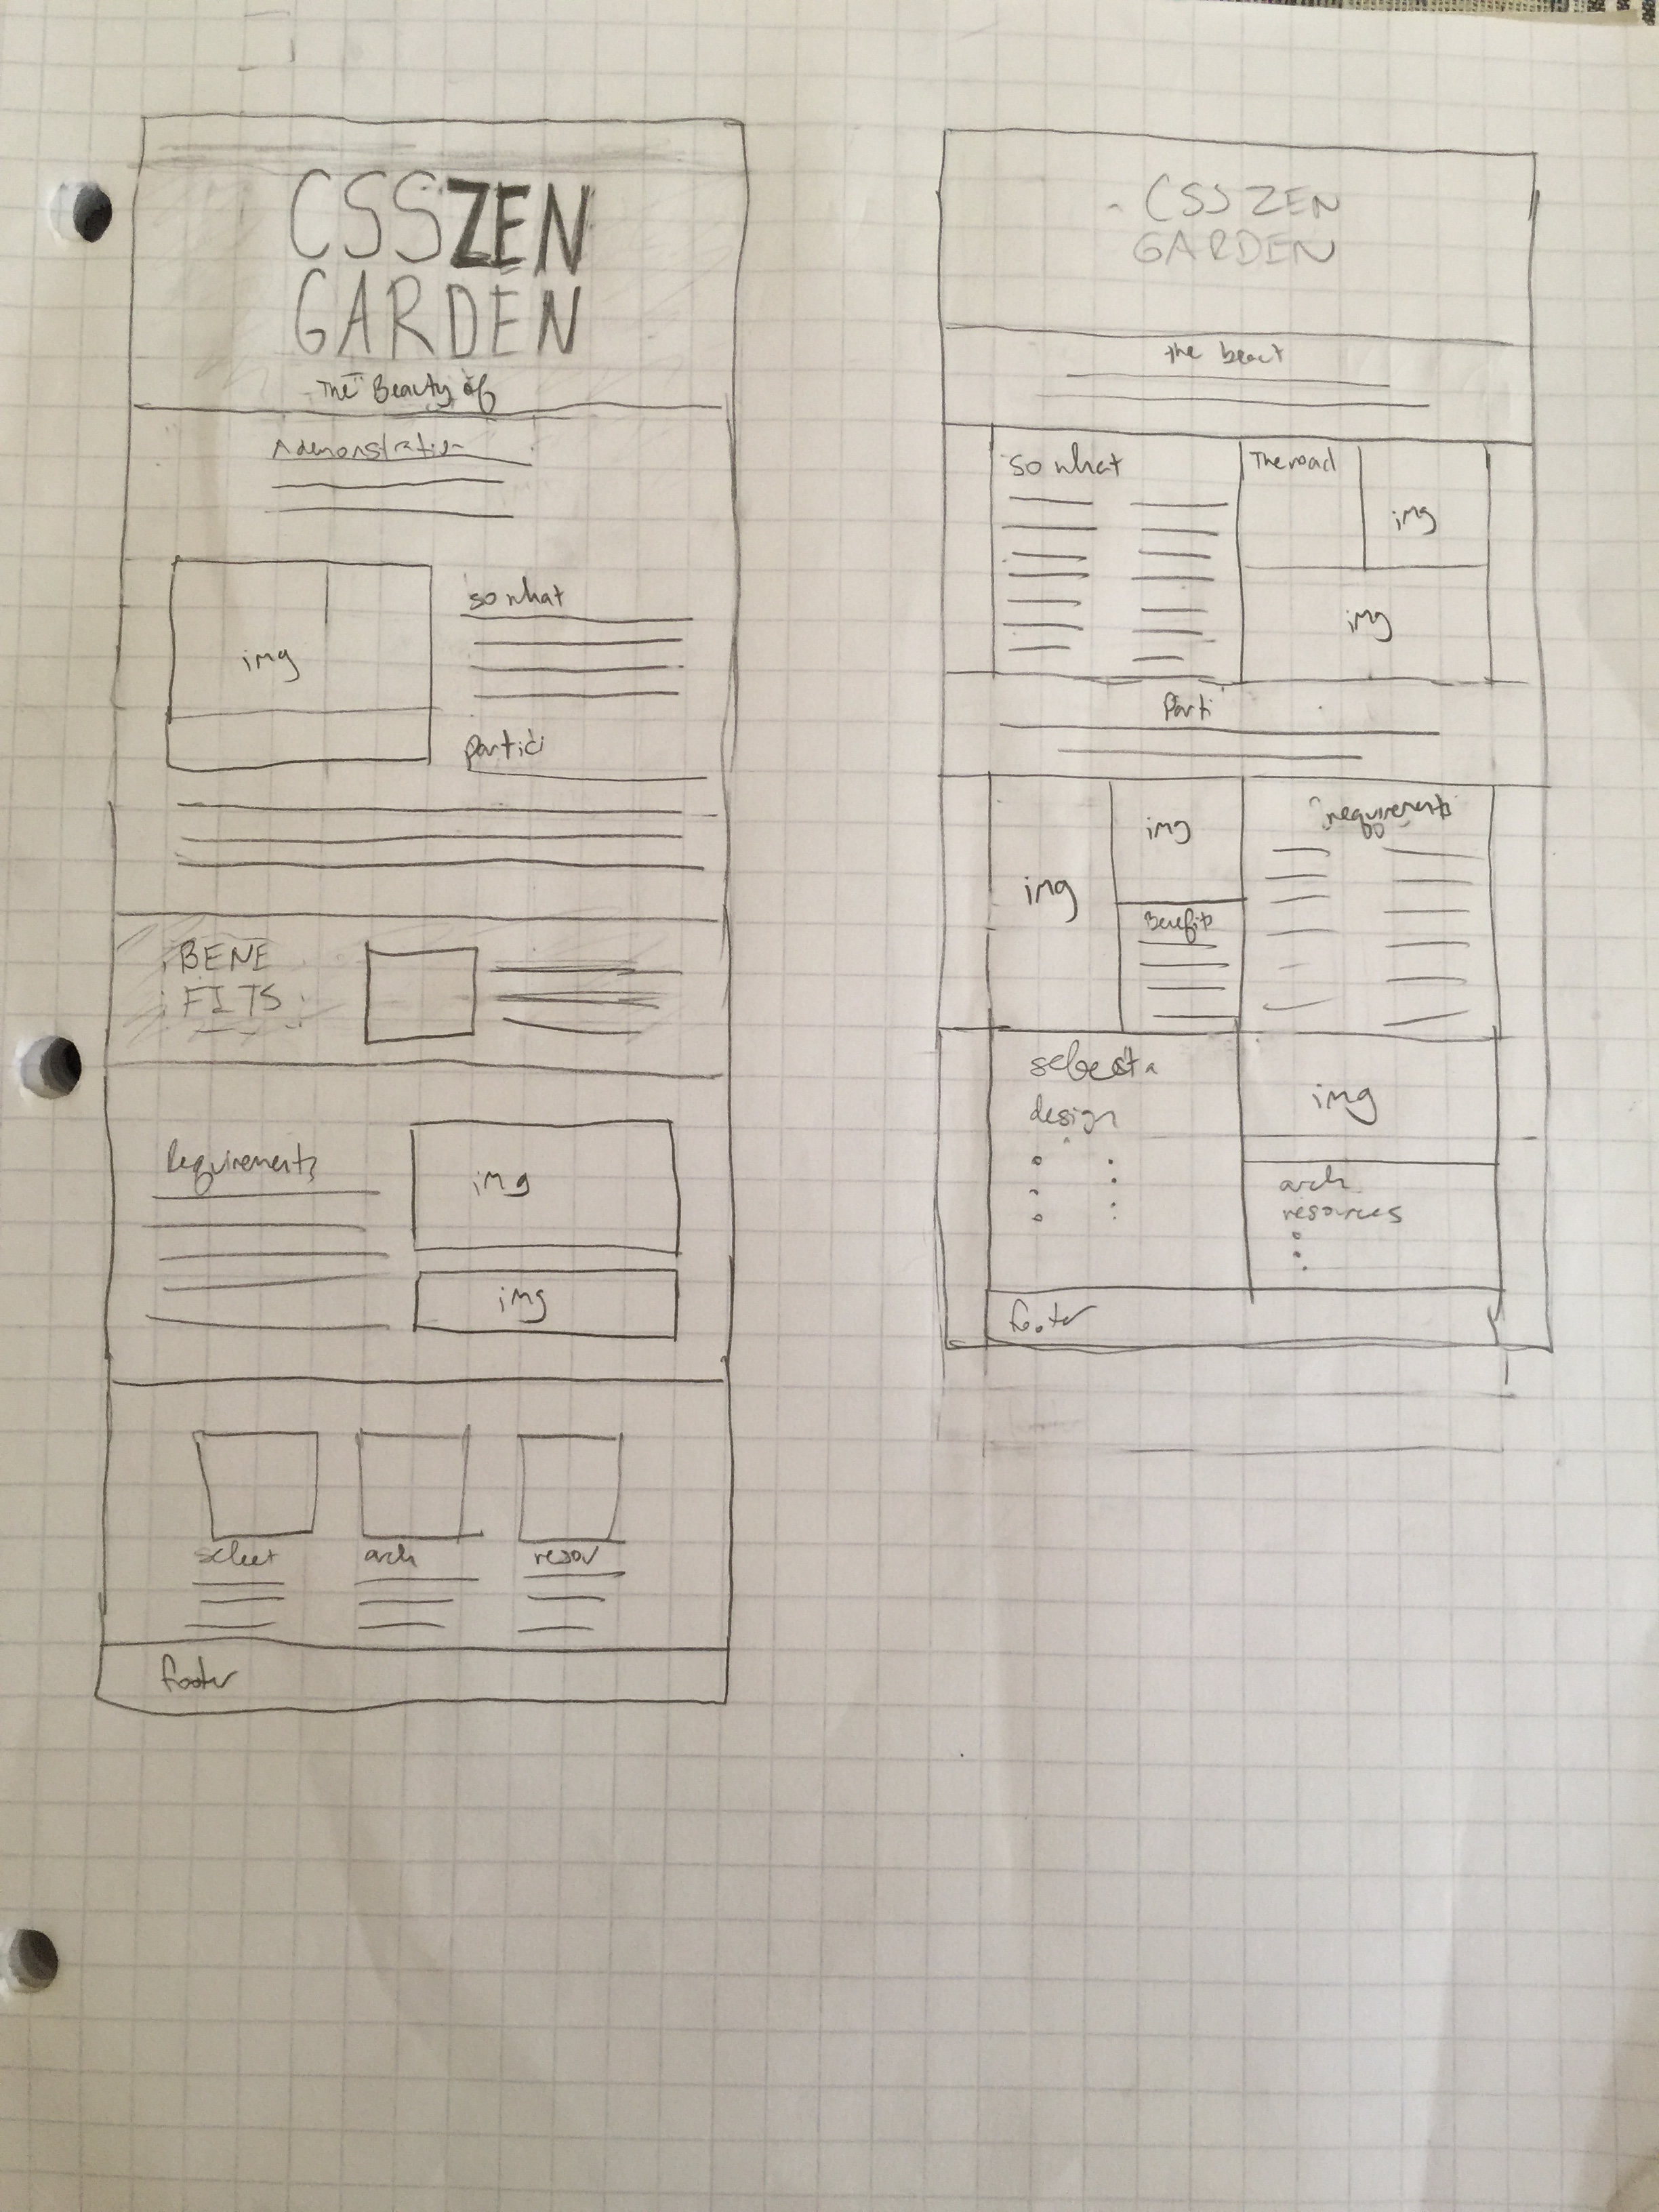 CSS ZEN
GARDEN
The Beauty of
A demonstration
img
so what
partici
BENE
FITS
Requirements
img
img
select
arch
resou
footer
CSS ZEN
GARDEN
the beaut
so what
The road
img
img
Parti
img
img
Benefits
requirements
select a
design
img
arch
resources
footer